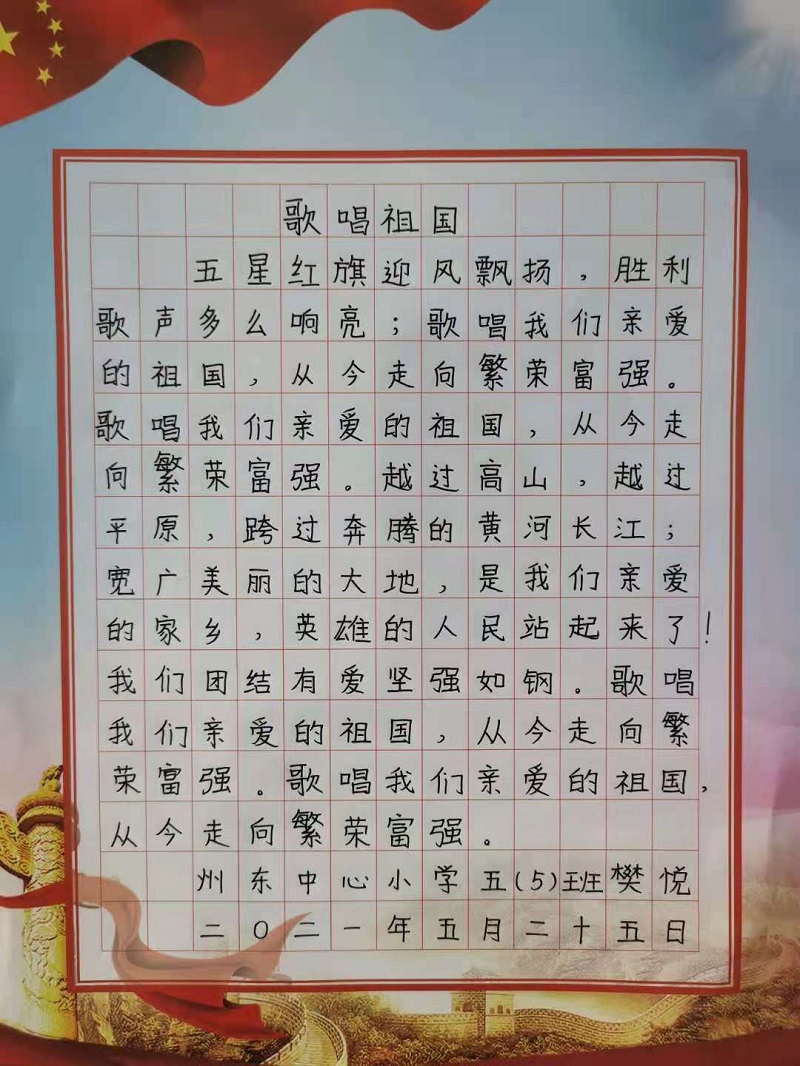 歌唱祖国
五星红旗迎风飘扬，胜利
歌声多么响亮；歌唱我们亲爱
的祖国，从今走向繁荣富强。
歌唱我们亲爱的祖国，从今走
向繁荣富强。越过高山，越过
平原，跨过奔腾的黄河长江；
宽广美丽的大地，是我们亲爱
的家乡，英雄的人民站起来了！
我们团结有爱坚强如钢。歌唱
我们亲爱的祖国，从今走向繁
荣富强。歌唱我们亲爱的祖国，
从今走向繁荣富强。
州东中心小学五(5)班樊悦
二〇二一年五月二十五日